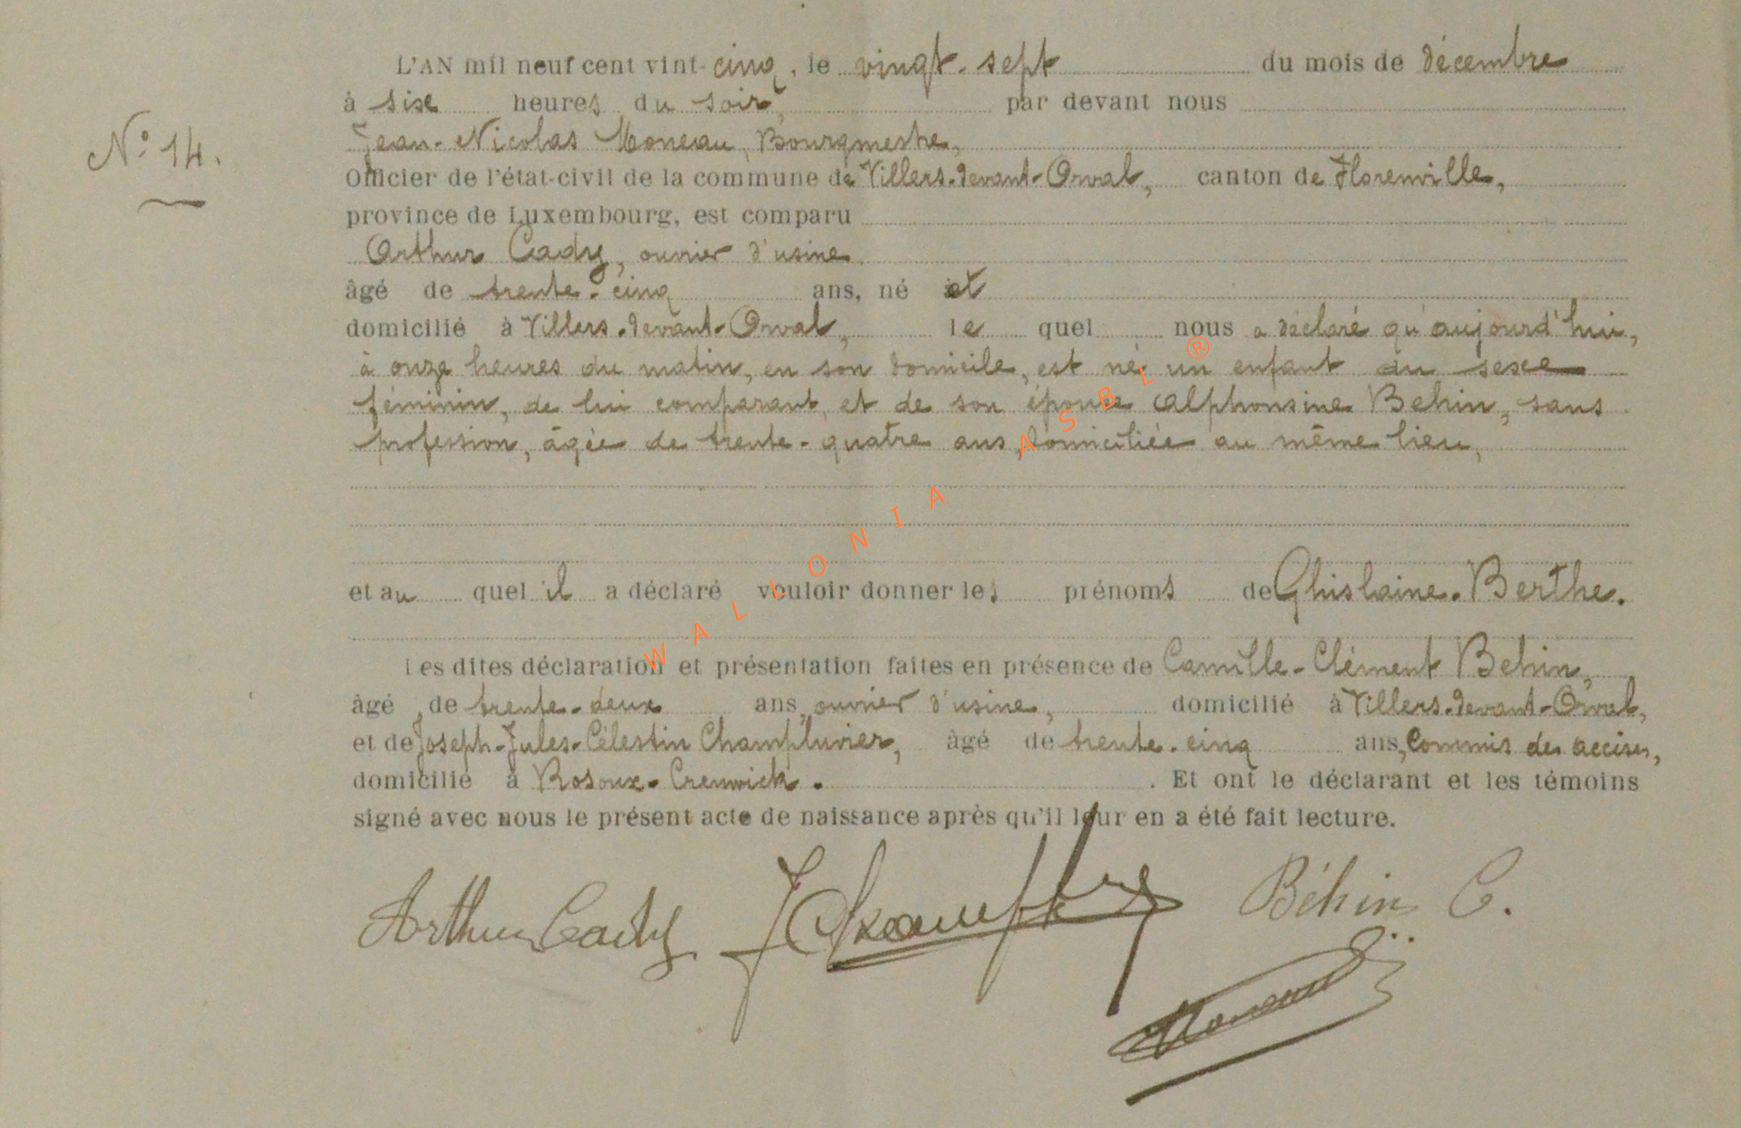 L'AN mil neuf cent vint-cinq, le vingt-sept du mois de décembre
à sixe heures du soir, par devant nous
N° 14.
Jean-Nicolas Moneau, Bourgmestre,
Officier de l'état-civil de la commune de Villers-devant-Orval, canton de Florenville,
province de Luxembourg, est comparu
Arthur Cady, ouvrier d'usine
âgé de trente-cinq ans, né et
domicilié à Villers-devant-Orval, le quel nous a déclaré qu'aujourd'hui,
à onze heures du matin, en son domicile, est né un enfant du sexe
féminin, de lui comparant, et de son épouse Alphonsine Behin, sans
profession, âgée de trente-quatre ans, domiciliée au même lieu,
et au quel il a déclaré vouloir donner les prénoms de Ghislaine-Berthe.
Les dites déclaration et présentation faites en présence de Camille-Clément Behin,
âgé de trente-deux ans, ouvrier d'usine, domicilié à Villers-devant-Orval,
et de Joseph-Jules-Célestin Champluvier, âgé de trente-cinq ans, Commis des accises,
domicilié à Rosoux-Crenwick. . Et ont le déclarant et les témoins
signé avec nous le présent acte de naissance après qu'il leur en a été fait lecture.
Arthur Cady Béhin C.
WALLONIA ASBL ®